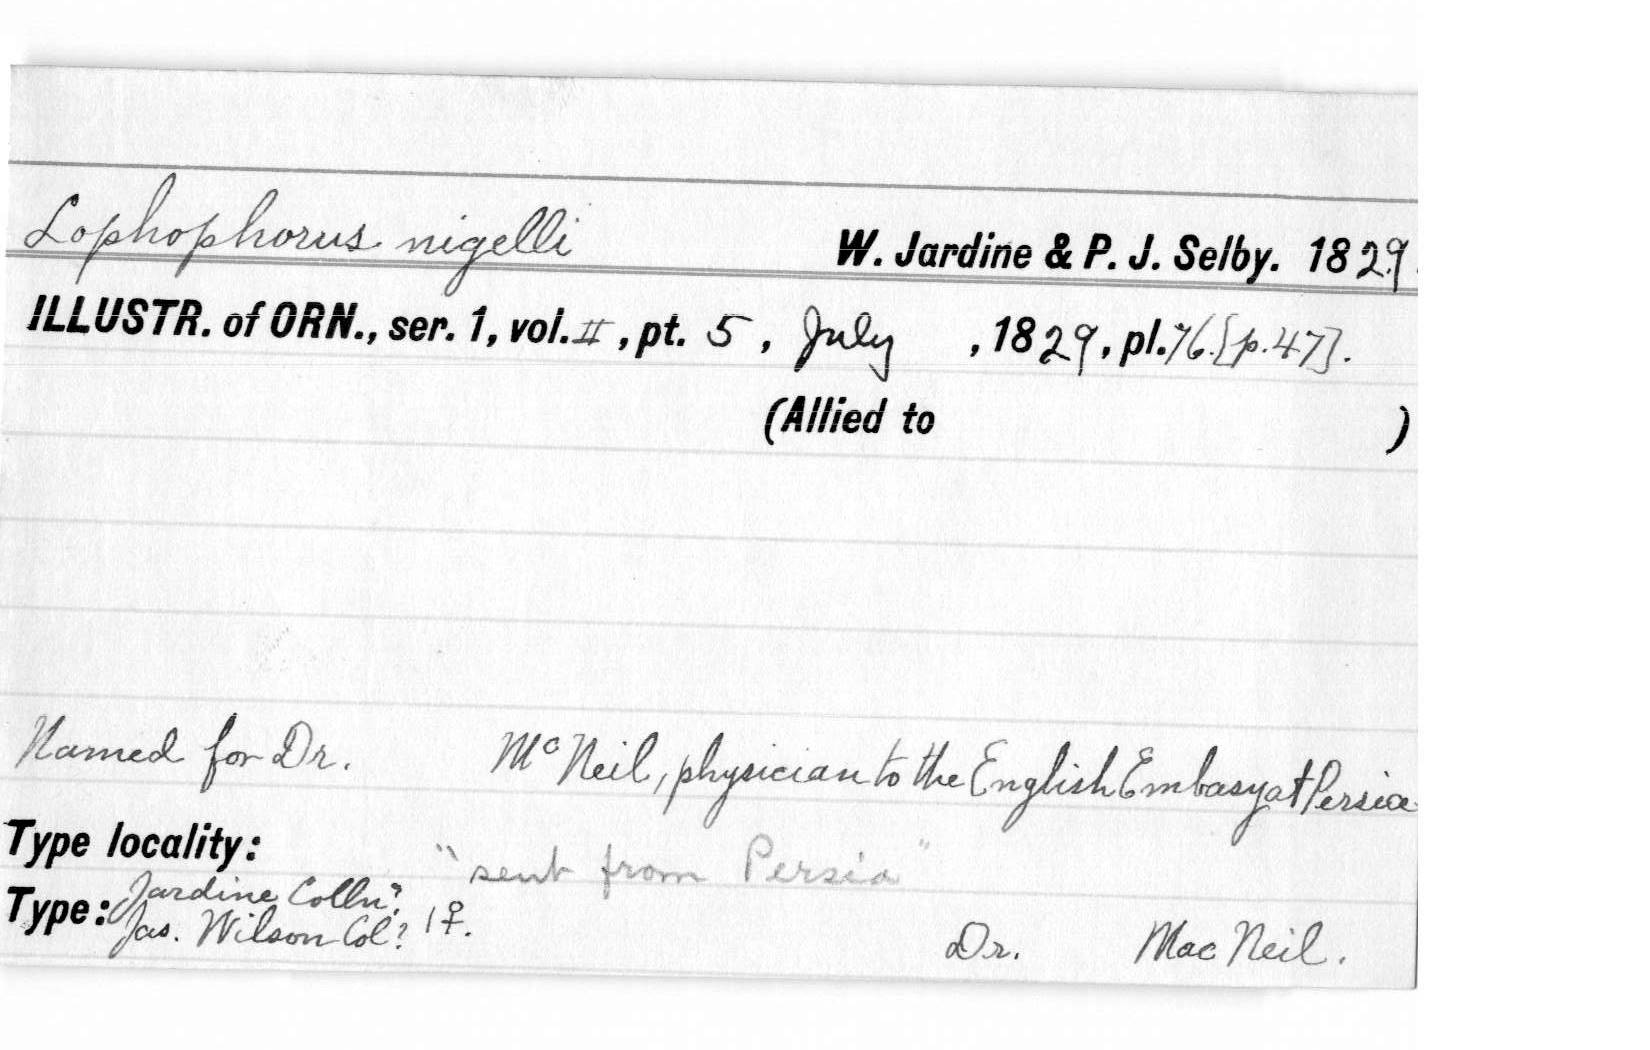 Lophophorus nigelli W. Jardine & P. J. Selby. 1829.
ILLUSTR. of ORN., ser. 1, vol. II, pt. 5, July, 1829, pl. 76. [p. 47].
(Allied to )
Named for Dr. McNeil, physician to the English Embasy at Persia
Type locality: "sent from Persia"
Type: Jardine Colln?
Jas. Wilson Col? 1♀.
Dr. MacNeil.